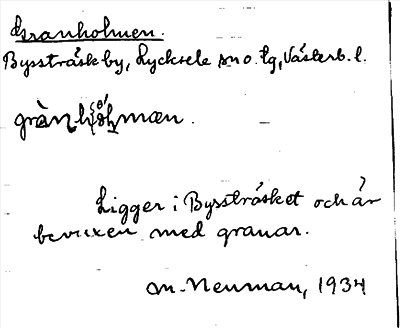 Granholmen.
Bysträsk by, Lycksele sn o. lg, Västerb. l.
Ligger i Bysträsket och är
bevuxen med granar.
M. Neuman, 1934